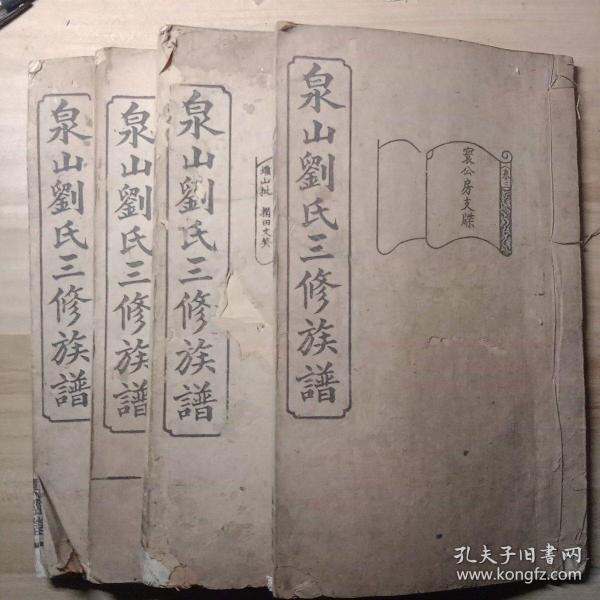 泉山劉氏三修族譜
泉山劉氏三修族譜
泉山劉氏三修族譜
泉山劉氏三修族譜
寰公房支牒
卷三
孔夫子旧书网
www.kongfz.com